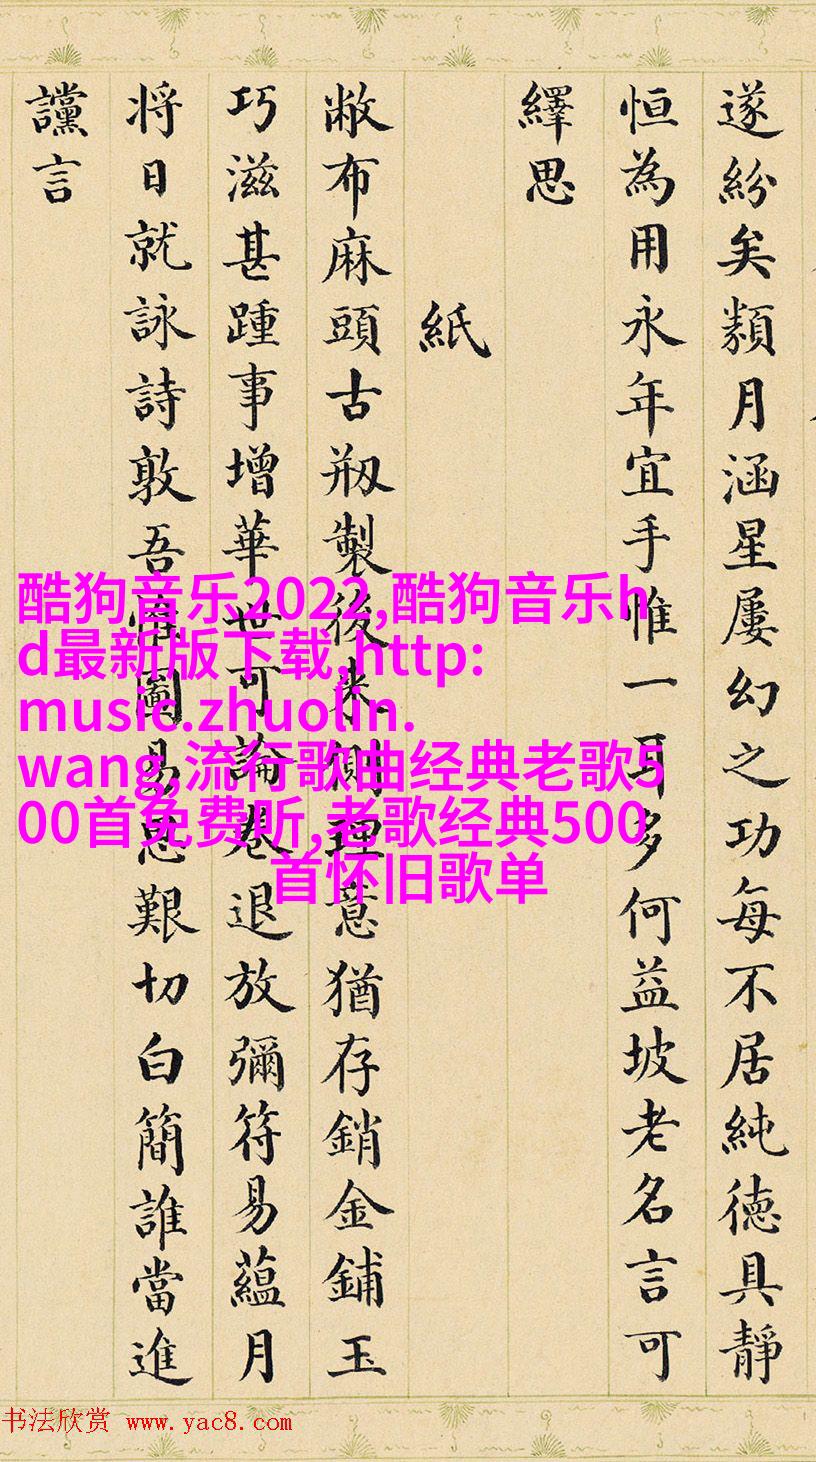 遂紛矣類月涵星屢幻之功每不居純德具靜
恒為用永年宜手惟一耳多何益坡老名言可
繹思
紙
敝布麻頭古剏製後来側理意猶存銷金鋪玉
巧滋甚踵事增華世可論卷退放彌符易蘊月
将日就詠詩敦吾惟圖易思艱切白簡誰當進
讜言
酷狗音乐2022,酷狗音乐h
d最新版下载,http:
music.zhuolin.
wang,流行歌曲经典老歌5
00首免费听,老歌经典500
首怀旧歌单
书法欣赏 www.yac8.com